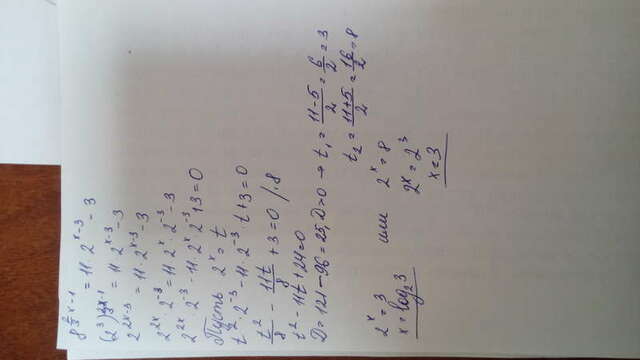 8^(2/3 x - 1) = 11·2^(x-3) - 3
(2^3)^(2/3 x - 1) = 11·2^(x-3) - 3
2^(2x-3) = 11·2^(x-3) - 3
2^(2x)·2^(-3) = 11·2^x·2^(-3) - 3
2^(2x)·2^(-3) - 11·2^x·2^(-3) + 3 = 0
Пусть 2^x = t
t^2·2^(-3) - 11·2^(-3)·t + 3 = 0
t^2/8 - 11t/8 + 3 = 0 /·8
t^2 - 11t + 24 = 0
D = 121 - 96 = 25, D>0 → t₁ = (11-5)/2 = 6/2 = 3
t₂ = (11+5)/2 = 16/2 = 8
2^x = 3 или 2^x = 8
x = log₂3 2^x = 2^3
x = 3